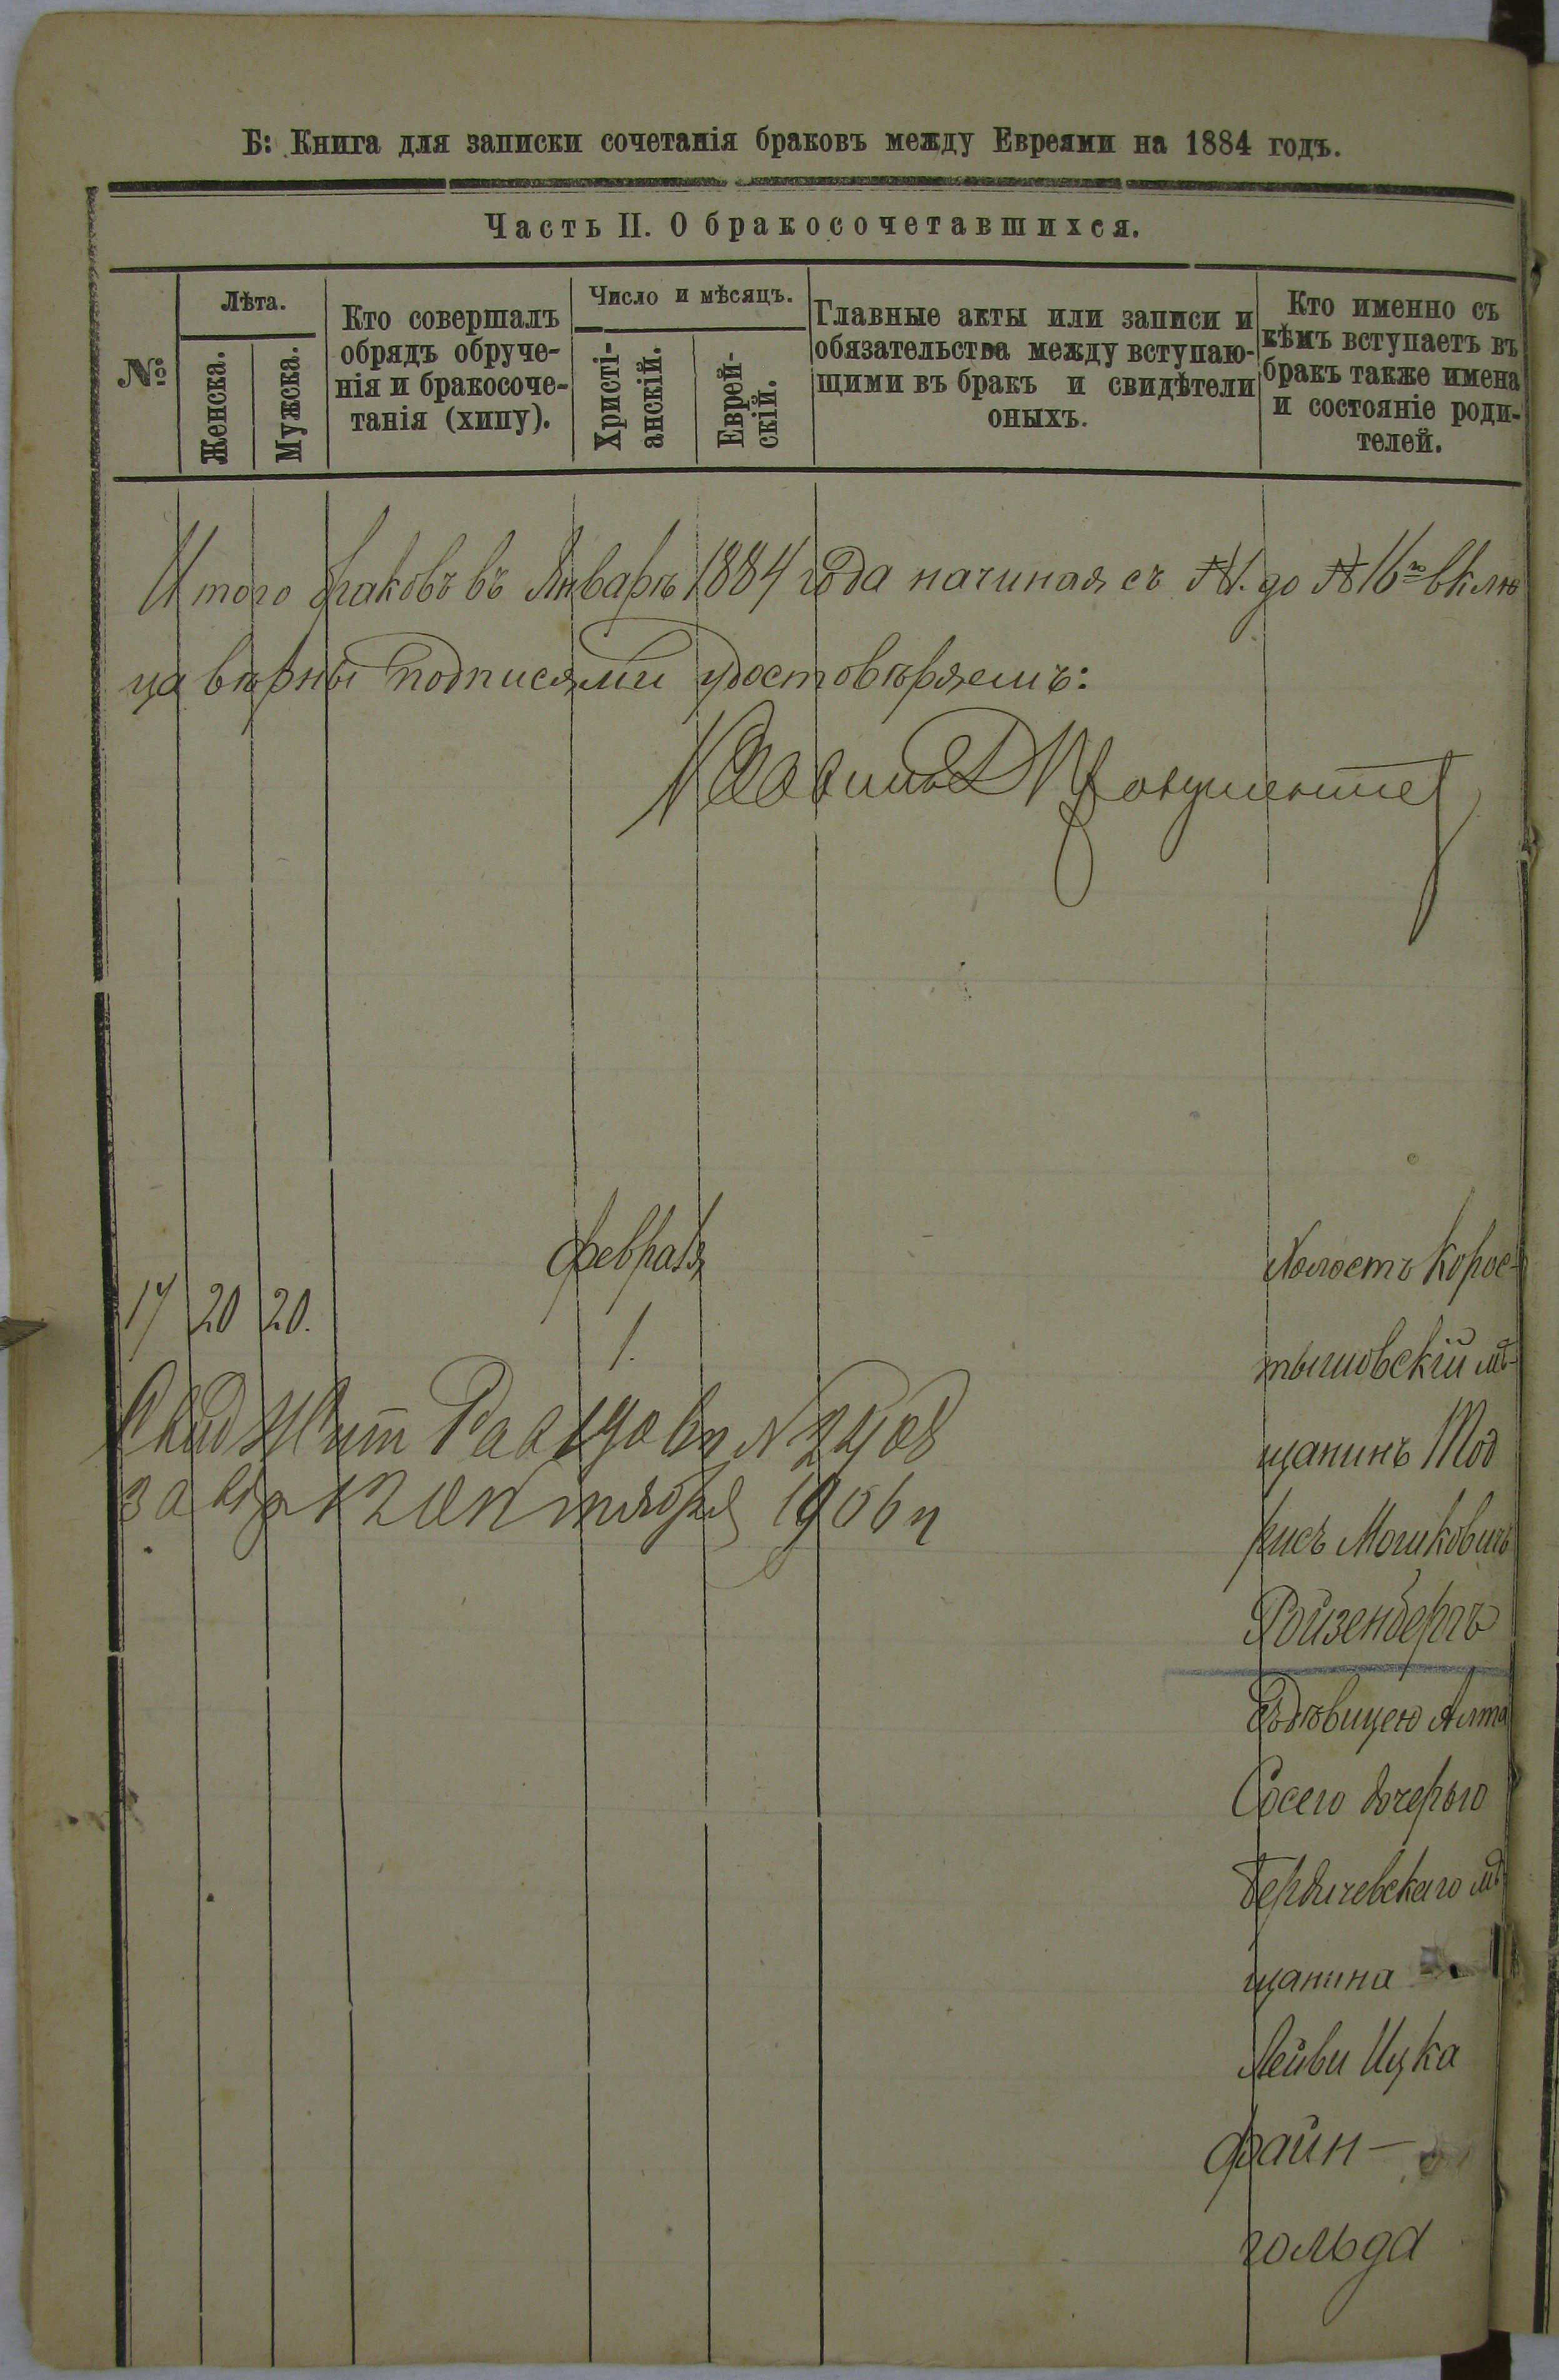 Б: Книга для записки сочетанія браковъ между Евреями на 1884 годъ.
Часть II. О бракосочетавшихся.
№
Лѣта.
Женска.
Мужска.
Кто совершалъ
обрядъ обруче-
нія и бракосоче-
танія (хипу).
Число и мѣсяцъ.
Христі-
анскій.
Еврей-
скій.
Главные акты или записи и
обязательства между вступаю-
щими въ бракъ и свидѣтели
оныхъ.
Кто именно съ
кѣмъ вступаетъ въ
бракъ также имена
и состояніе роди-
телей.
Итого браковъ въ Январѣ 1884 года начиная съ №1. до №16го вклю
ца вѣрны подписями удостовѣряемъ:
Февраля
17 20 20.
1.
Свид Жит № 2408
за 12 Октября 1906 г
Холостъ Корос-
тышовскій мѣ-
щанинъ
Мошковичъ
Ройзенбергъ
съ дѣвицею Алта
Сосею дочерью
Бердичевскаго мѣ-
щанина
Лейви Ицка
Файн-
гольда